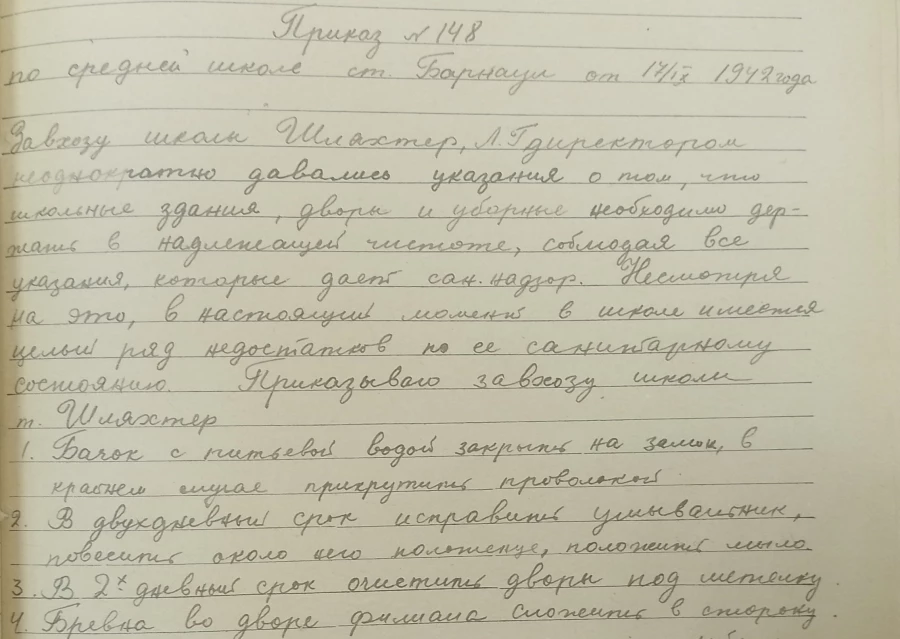 Приказ № 148
по средней школе ст. Барнаул от 17/IX 1942 года
Завхозу школы Шляхтер, Л.Г директором
неоднократно давались указания о том, что
школьные здания, дворы и уборные необходимо дер-
жать в надлежащей чистоте, соблюдая все
указания, которые дает сан. надзор. Несмотря
на это, в настоящий момент в школе имеется
целый ряд недостатков по ее санитарному
состоянию. Приказываю завхозу школы
т. Шляхтер
1. Бачок с питьевой водой закрыть на замок, в
крайнем случае прикрутить проволокой
2. В двухдневный срок исправить умывальник,
повесить около него полотенце, положить мыло.
3. В 2х дневный срок очистить дворы под метелку.
4. Бревна во дворе филиала сложить в сторону.